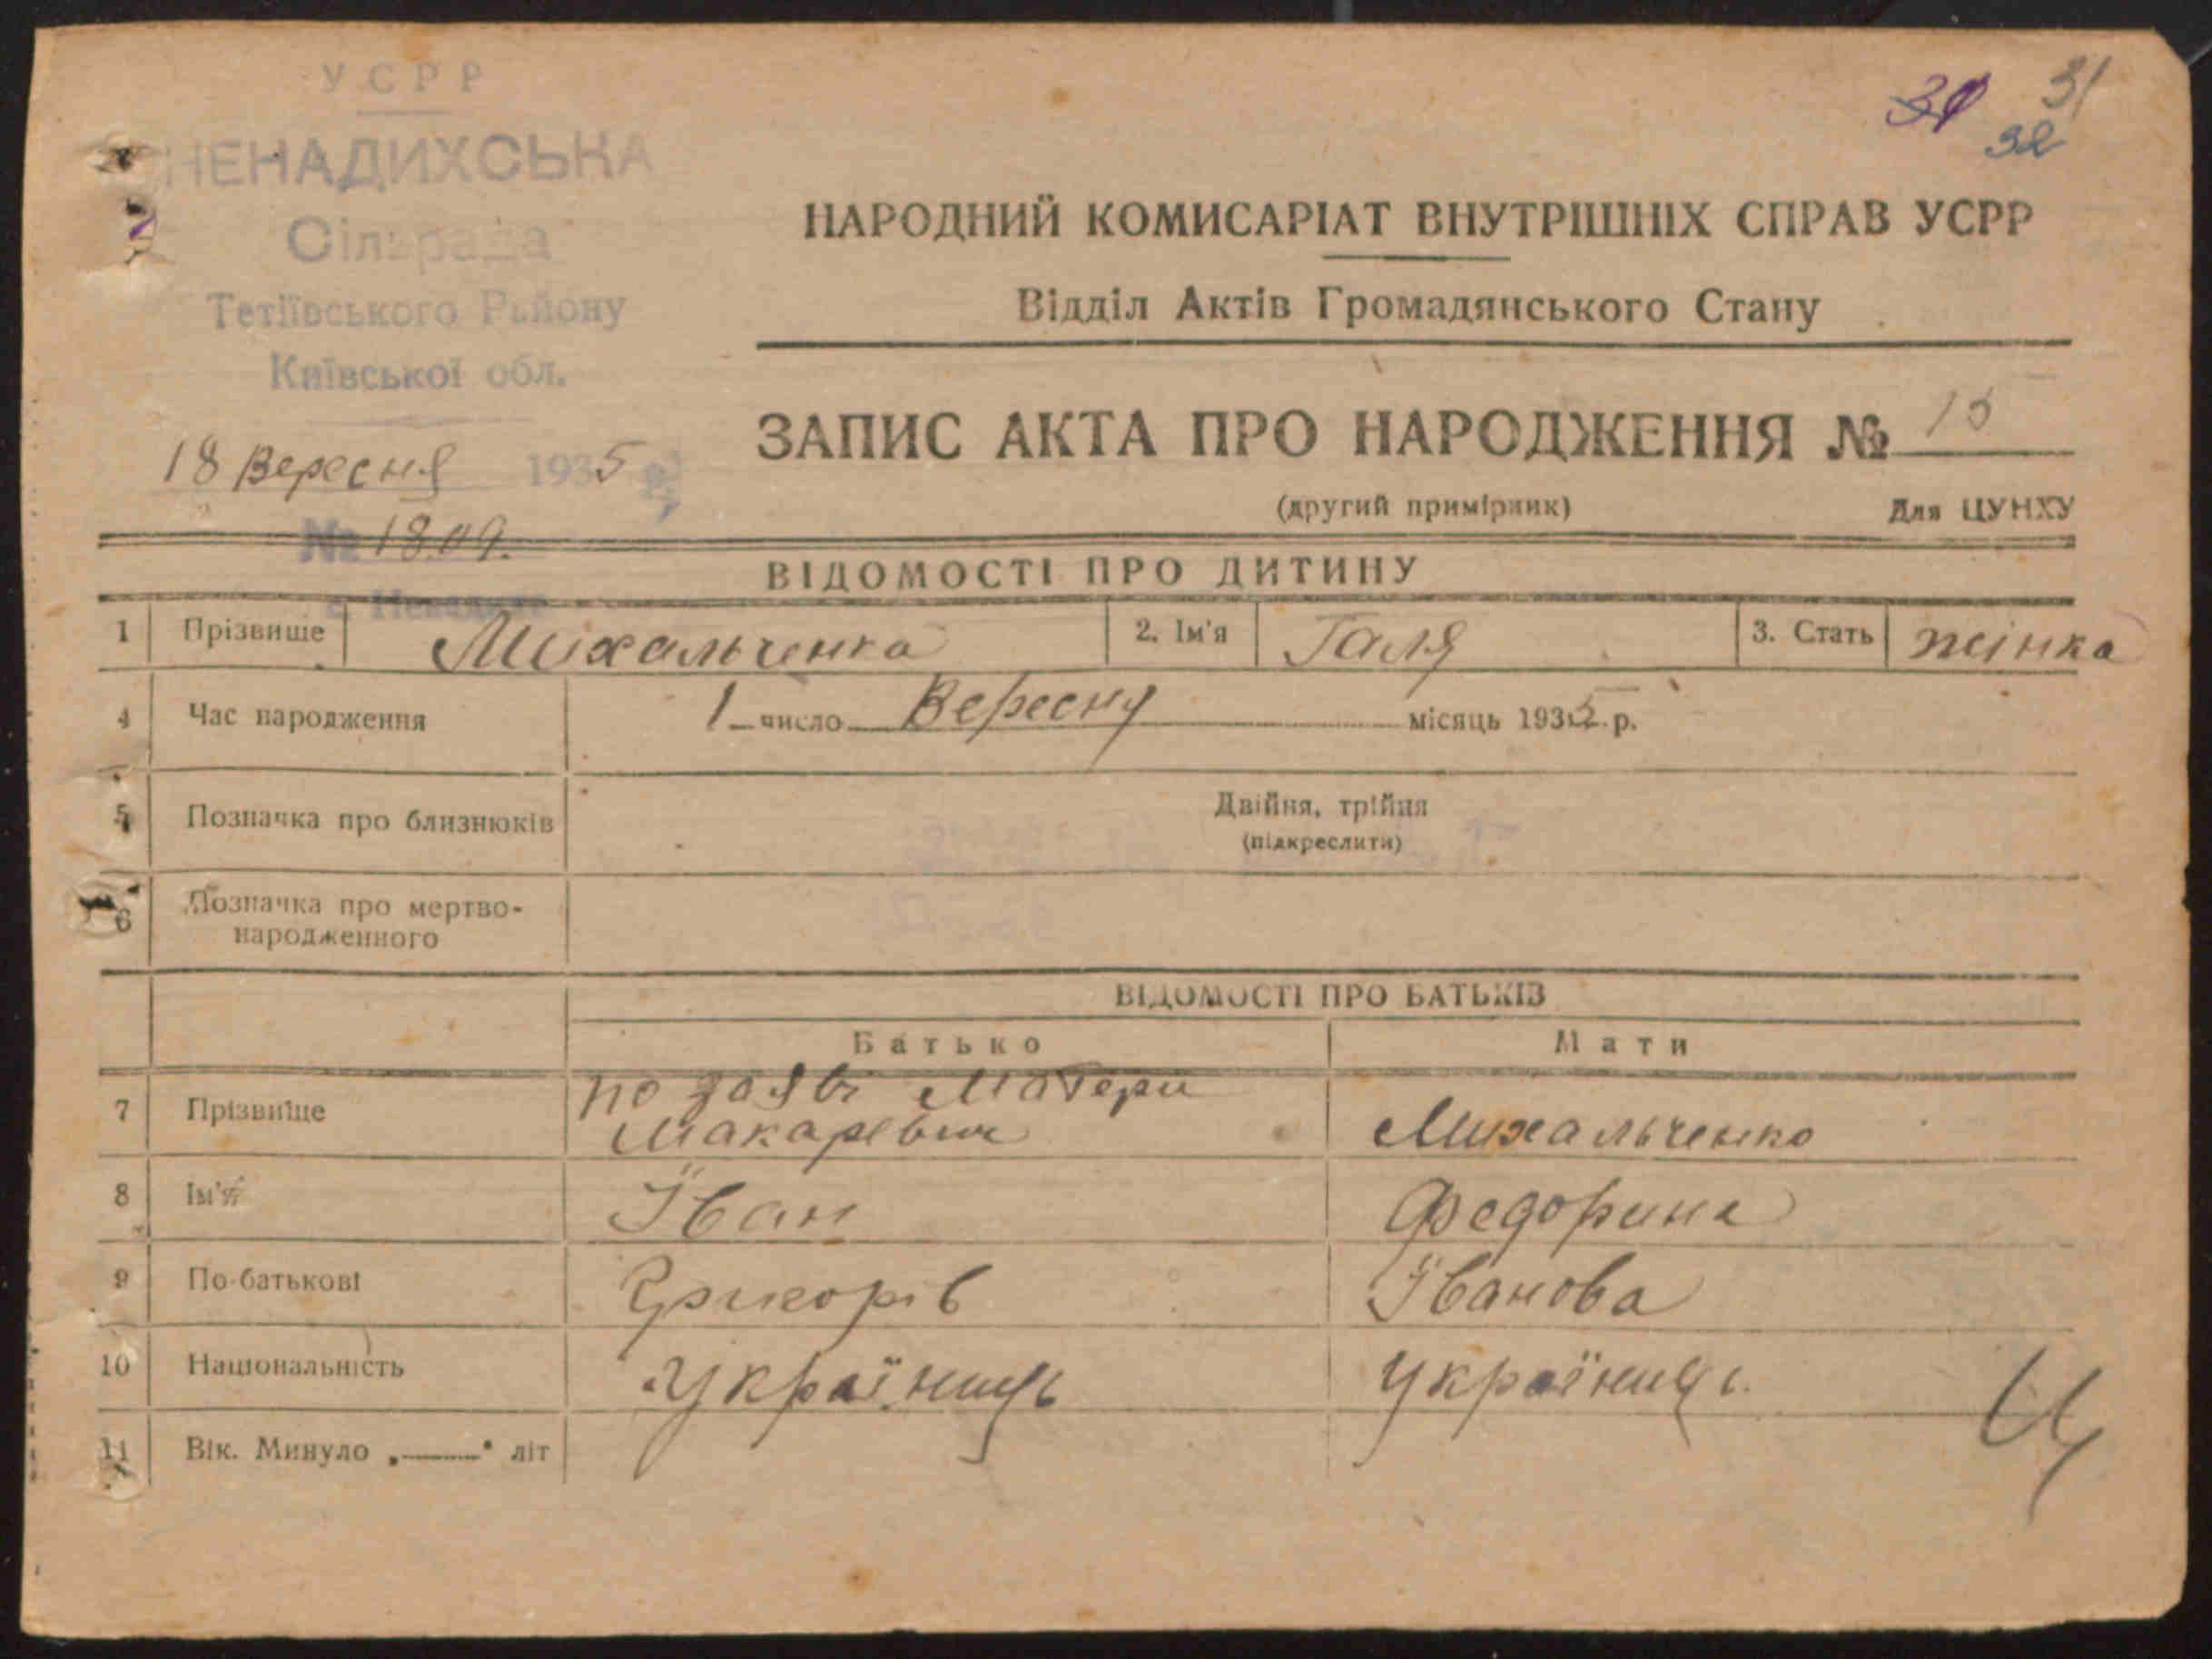 УСРР
НЕНАДИХСЬКА
Сільрада
Тетіївського Району
Київської обл.
18 Вересня 1935 р.
№ 1809.
31
32
НАРОДНИЙ КОМИСАРІАТ ВНУТРІШНІХ СПРАВ УСРР
Відділ Актів Громадянського Стану
ЗАПИС АКТА ПРО НАРОДЖЕННЯ № 15
(другий примірник) Для ЦУНХУ
ВІДОМОСТІ ПРО ДИТИНУ
1 Прізвище Михальченка 2. Ім'я Галя 3. Стать жінка
4 Час народження 1 число Вересня місяць 1935 р.
5 Позначка про близнюків Двійня, трійня
(підкреслити)
6 Позначка про мертво-
народженного
ВІДОМОСТІ ПРО БАТЬКІВ
Батько Мати
по заяві Матери
7 Прізвище Макаревич Михальченко
8 Ім'я Іван Федорина
9 По-батькові Григорів Іванова
10 Національність Українець Українець.
11 Вік. Минуло „ “ літ